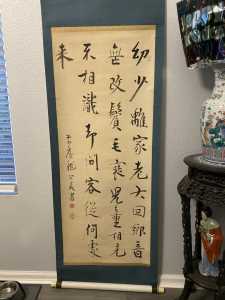 幼少離家老大回鄉音
無改鬢毛衰兒童相見
不相識 問客從何處
来
書